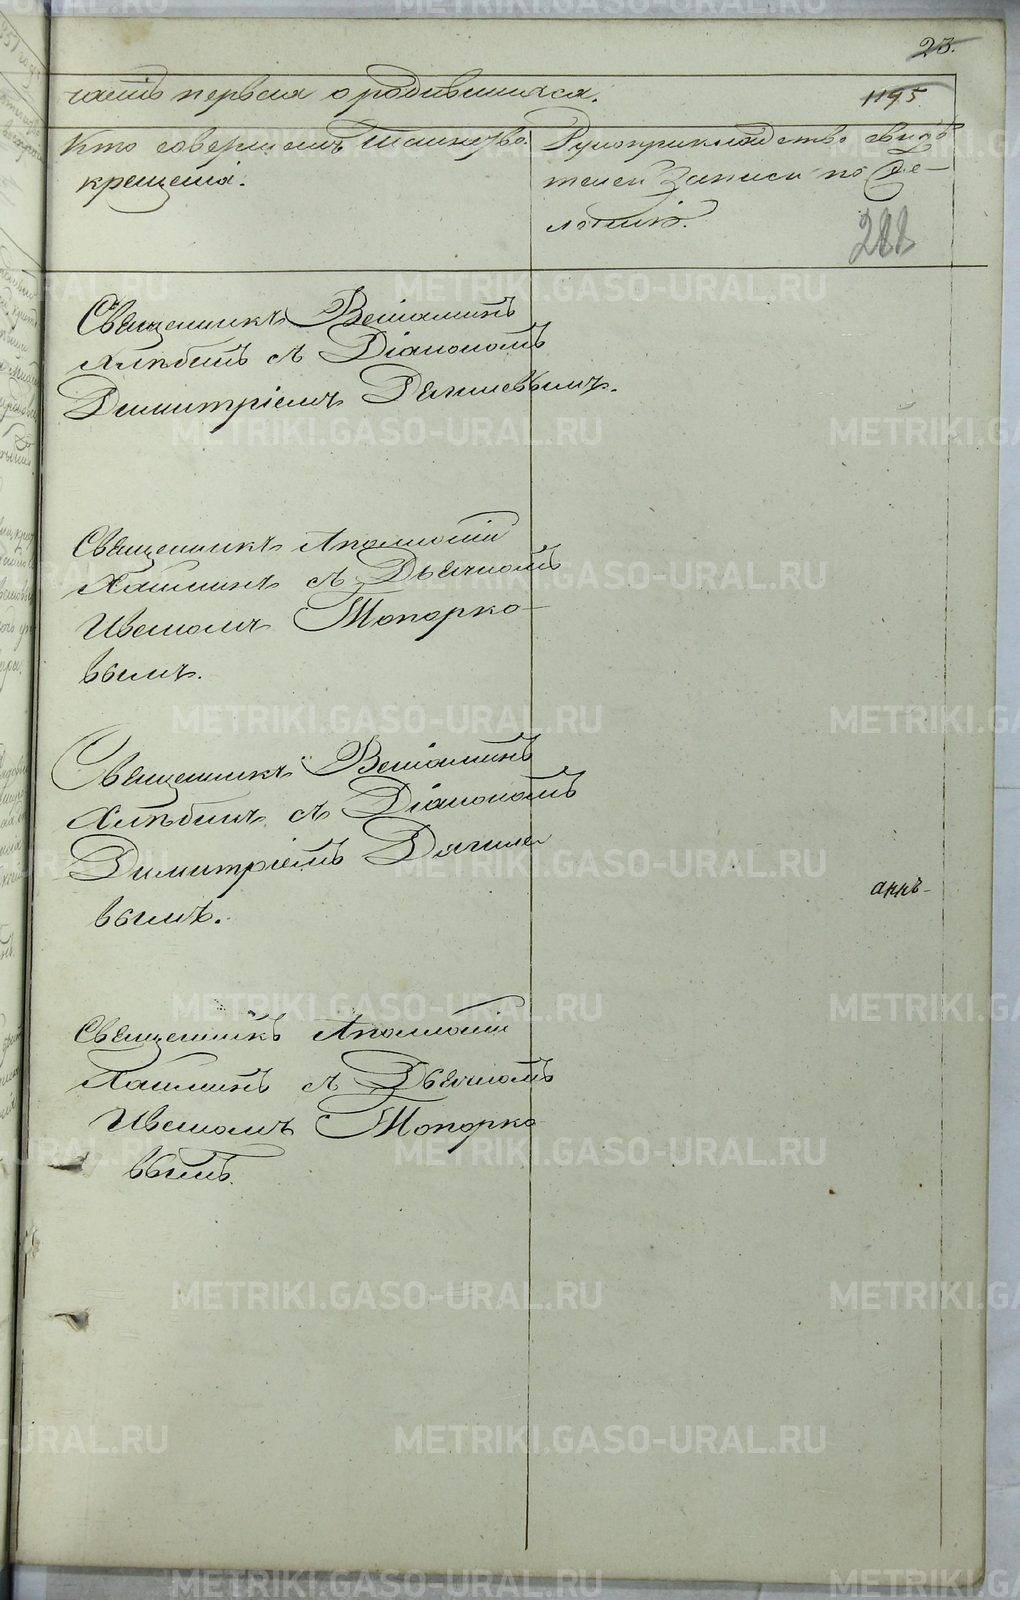 23.
часть первая о родившихся.
1195
Кто совершалъ таинство
крещенія.
Рукоприкладство свидѣ
телей записи по же-
ланію.
288
Священникъ Веніаминъ
Хлѣбинъ съ Діакономъ
Димитріемъ Дягилевымъ.
Священникъ Аполлоній
съ Дьячкомъ
Иваномъ Топорко-
вымъ.
Священникъ Веніаминъ
Хлѣбинъ съ Діакономъ
Димитріемъ Дягиле
вымъ.
Священникъ Аполлоній
съ Дьячкомъ
Иваномъ Топорко
вымъ.
METRIKI.GASO-URAL.RU